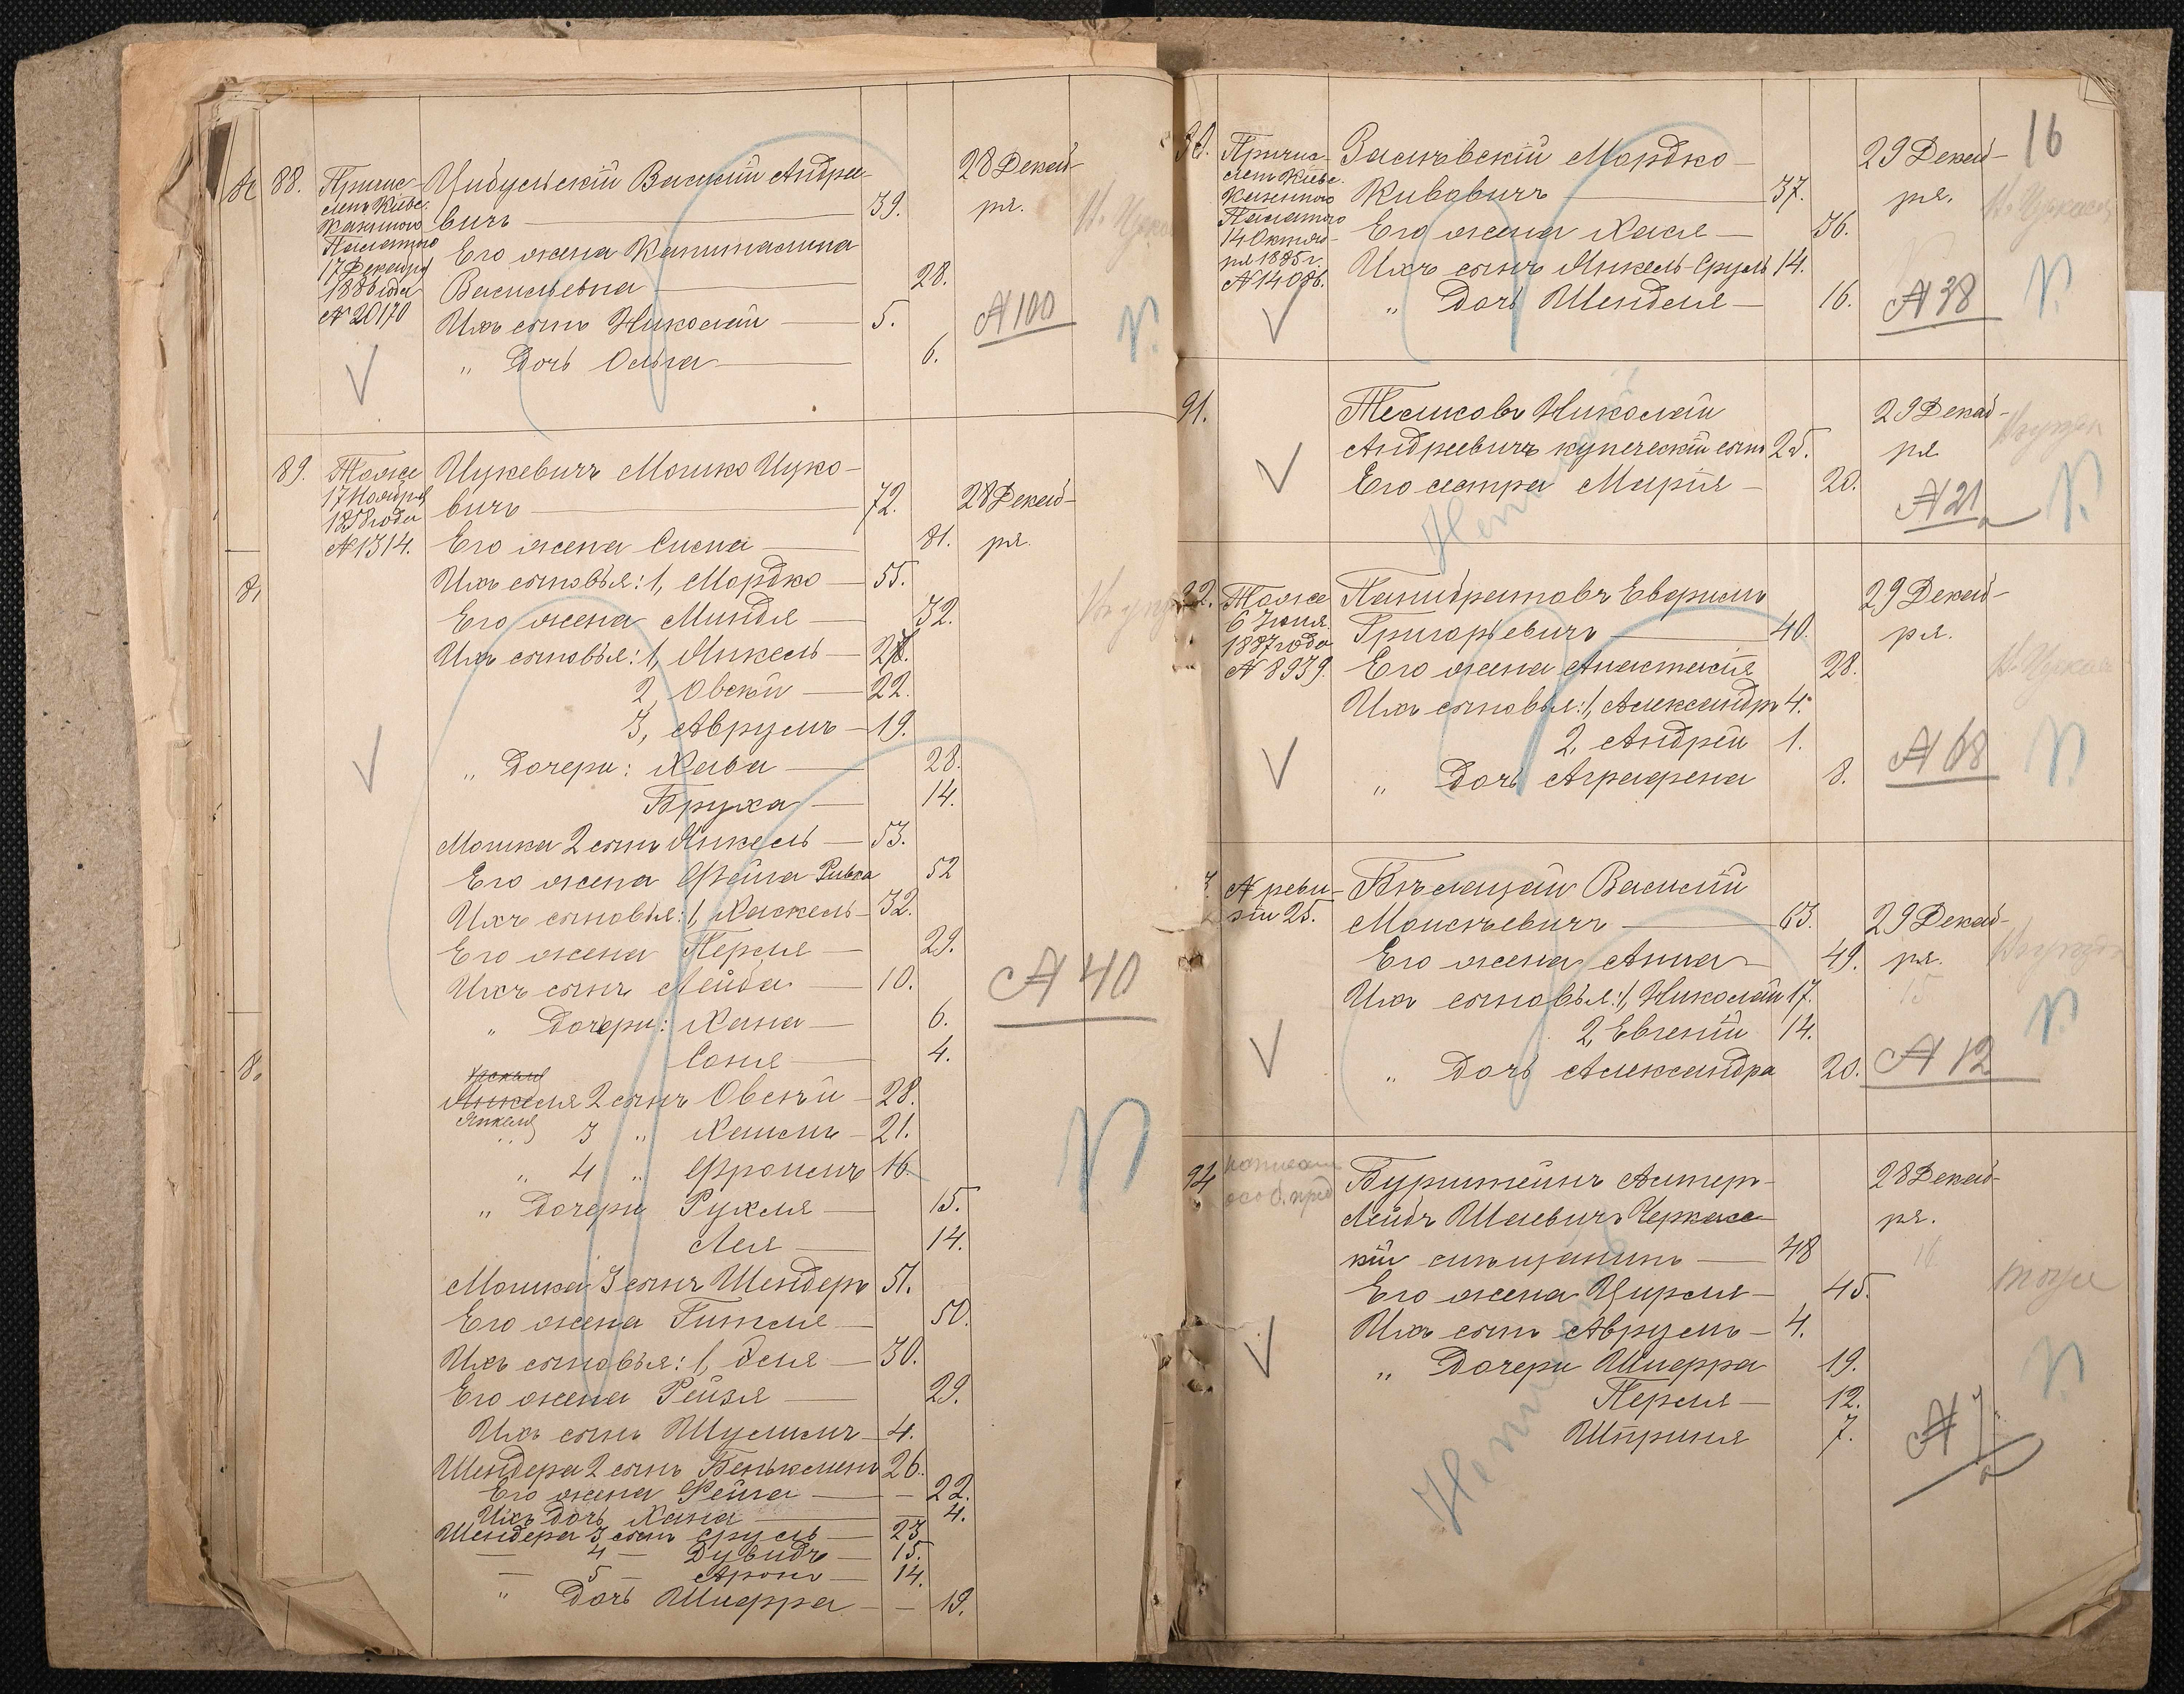 88. Причис-
лен Кіевс.
Казенною
Палатою
17 Декабря
1886 года
№ 20170
Цибульскій Василій Андрее-
вичъ — 39.
28 Декаб-
ря.
Его жена Капитолина
Васильевна — 28.
Ихъ сынъ Николай — 5.
„ Дочь Ольга — 6.
№ 100
89. Тоже
17 Ноября
1858 года
№ 1314.
Цукевичъ Мошко Цуко-
вичъ — 72.
28 Декаб-
ря.
Его жена Сисна — 81.
Ихъ сыновья: 1, Мордко — 55.
Его жена Миндля — 32.
Ихъ сыновья: 1, Янкель —
2, Овсѣй — 22.
3, Аврумъ — 19.
„ Дочери: Хава — 28.
Бруха — 14.
Мошка 2 сынъ Янкель — 53.
Его жена Фейга Ривка 52
Ихъ сыновья: 1, Хаскель — 32.
Его жена Перля — 29.
Ихъ сынъ Лейба — 10.
„ Дочери: Хана — 6.
Соня — 4.
№ 40
Янкеля 2 сынъ Овсѣй — 28.
Янкеля
„ 3 „ Хаимъ — 21.
„ 4 „ Фроимъ 16.
„ Дочери Рухля — 15.
Лея — 14.
Мошка 3 сынъ Шендеръ 51.
Его жена Гитля — 50.
Ихъ сыновья: 1, — 30.
Его жена Рейзя — 29.
Ихъ сынъ Шулимъ — 4.
Шендера 2 сынъ Беньяминъ 26.
Его жена Фейга — 22.
Ихъ дочь Хана — 4.
Шендера 3 сынъ Сруль — 23.
— 4 — Дувидъ — 15.
— 5 — Аронъ — 14.
„ Дочь Шифра — 19.
16
90. Причис-
лен Кіевс.
Казенною
Палатою
14 Октяб-
ря 1885 г.
№ 14086.
Заславскій Мордко
Кивовичъ — 37.
29 Декаб-
ря.
Его жена Хася — 36.
Ихъ сынъ Янкель-Сруль 14.
„ Дочь Шендля — 16.
№ 38
91.
Тесликовъ Николай
Андреевичъ купеческій сынъ 25.
29 Декаб-
ря
Его сестра Марія — 20.
№ 21
92. Тоже
6 Іюня
1887 года
№ 8939.
Панибратовъ
Григорьевичъ — 40.
29 Декаб-
ря.
Его жена Анастасія 28.
Ихъ сыновья: 1, Александръ 4.
2, Андрей 1.
„ Дочь Аграфена 8.
№ 68
№ реви-
зіи 25.
Бѣлецкій Василій
Моисѣевичъ — 63.
29 Декаб-
ря.
Его жена Анна — 49.
Ихъ сыновья: 1, Николай 17.
2, Евгеній 14.
„ Дочь Александра 20.
№ 12
94
Бурштейнъ Аншер-
Лейбъ Шаевичъ Черкасс-
кій мѣщанинъ — 48
28 Декаб-
ря.
Его жена Цирля — 45.
Ихъ сынъ Аврумъ — 4.
„ Дочери Шифра 19.
Перля — 12.
Шпринця 7.
тоже